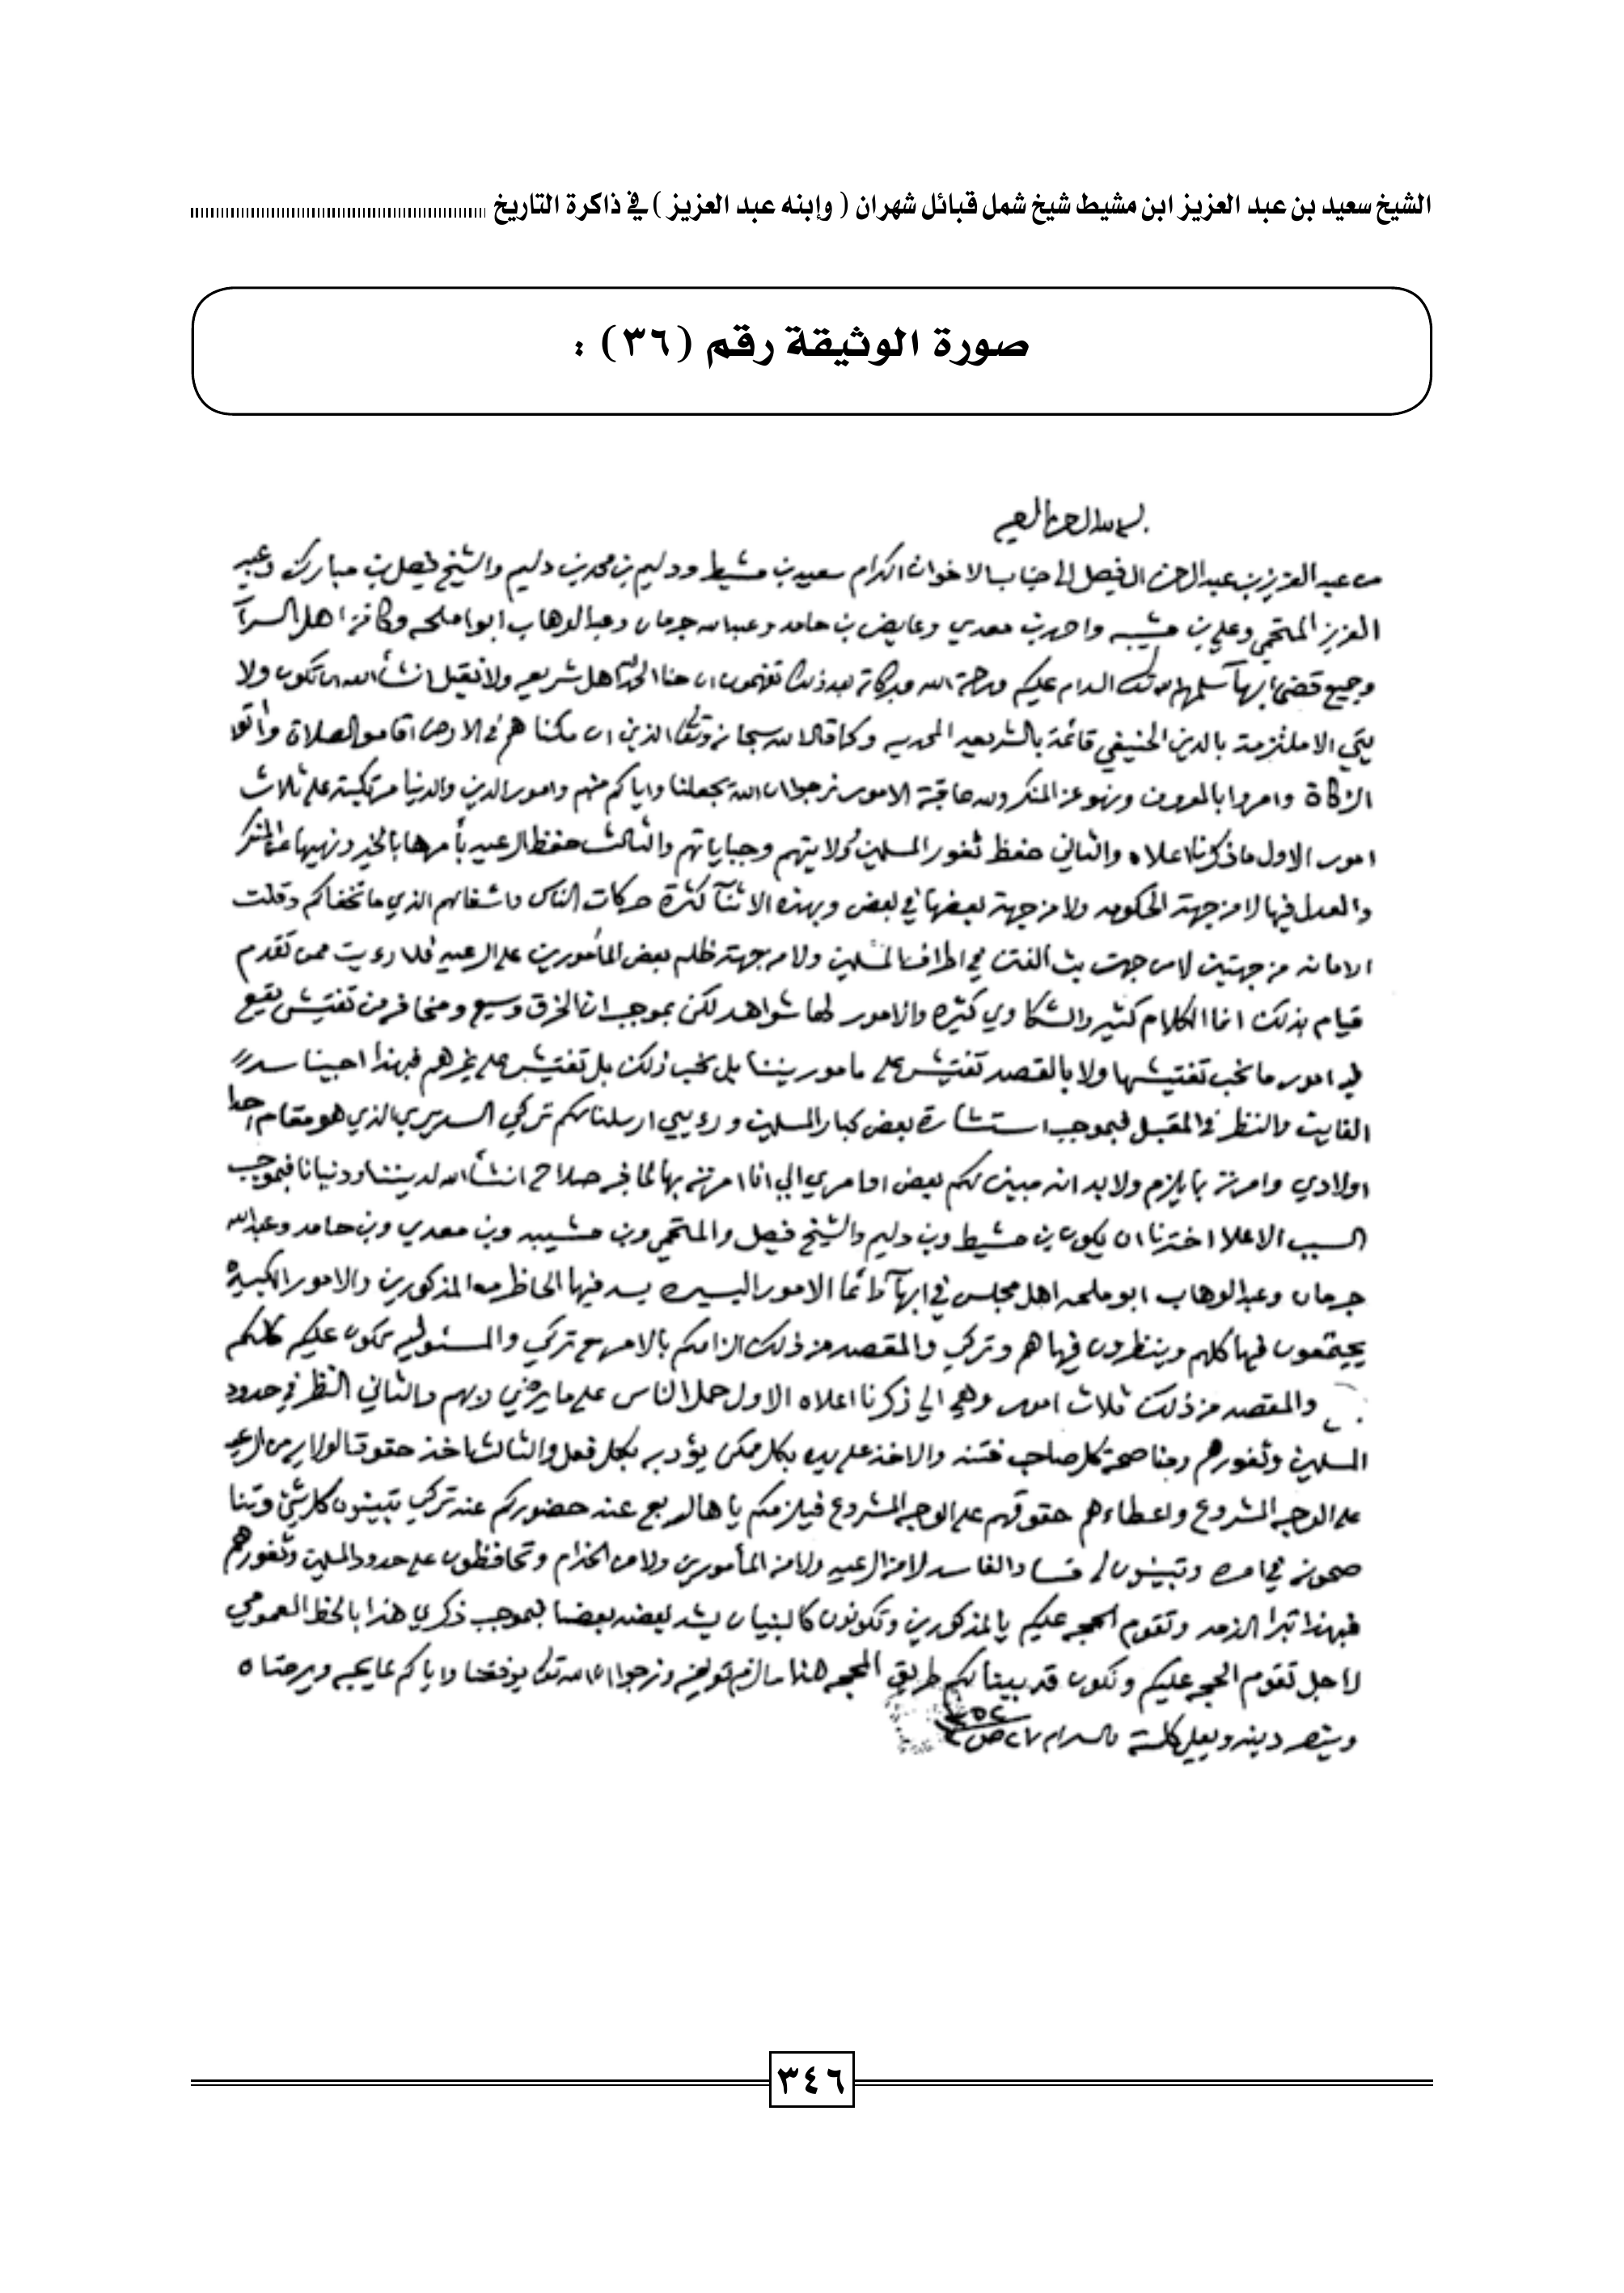 الشيخ سعيد بن عبد العزيز ابن مشيط شيخ شمل قبائل شهران ( وإبنه عبد العزيز ) في ذاكرة التاريخ
صورة الوثيقة رقم (٣٦) :
بسم الله الرحمن الرحيم
من عبد العزيز بن عبد الرحمن ال فيصل الى جناب الاخوان الكرام سعيد بن مشيط ودليم بن محمد بن دليم والشيخ فيصل بن مبارك وعبد
العزيز المتحمي وعلي بن مشيبه واحمد بن معدي وعايض بن حامد وعبدالله جرمان وعبدالوهاب ابوا ملحه وكافة اهل السرآ
وجميع قضى ابهآ سلمهم الله تعالى السلام عليكم ورحمة الله وبركاته بعد ذلك تفهمون ان حنا الحمد لله اهل شريعه ولا نقبل انشأ الله ان تكون ولا
يتي الا ملتزمة بالدين الحنيفي قائمة بالشريعه المحمديه وكما قال الله سبحانه وتعالى الذين ان مكناهم في الارض اقامو الصلاة وأتوا
الزكاة وامروا بالمعروف ونهو عن المنكر ولله عاقبة الامور نرجوا ان الله يجعلنا واياكم منهم وامور الدين والدنيا مرتكبة على ثلاث
امور الاول ما ذكرنا اعلاه والثاني حفظ ثغور المسلمين وولايتهم وجباياتهم والثالث حفظ الرعيه بأمرها بالخير ونهيها عن المنكر
والعدل فيها لا من جهة الحكومه ولا من جهة بعضها في بعض وبهذه الاثنآ كثرة حركات الناس واشغالهم الذي ما تخفاكم وقلت
الامانه من جهتين لامن جهت بث الفتن في اطراف المسلمين ولا من جهة ظلم بعض المأمورين على الرعيه فلا رءيت ممن تقدم
قيام بذلك انما الكلام كثير والشكاوي كثيره والامور لها شواهد لكن بموجب ان الخرق وسيع ومخافة من تفتيش يقع
فيه امور ما نحب تفتيشها ولا بالقصد تفتيش على مامورينا بل نحب ذلك بل تفتيش على غيرهم فبهذا احبينا سد
الفايت والنظر في المقبل فبموجب استشارة بعض كبار المسلمين ورءيي ارسلنا لكم تركي السديري الذي هو مقام احد
اولادي وامرته بما يلزم ولابد انه مبين لكم بعض اوامري الي انا امرته بها لما فيه صلاح انشأ الله لديننا ودنيانا فبموجب
السبب الاعلا اخترنا ان يكون بن مشيط وبن دليم والشيخ فيصل والمتحمي وبن مشيبه وبن معدي وبن حامد وعبدالله
جرمان وعبدالوهاب ابو ملحه اهل مجلس في ابهآ دائما الامور اليسيره يسد فيها الحاظر من المذكورين والامور الكبيرة
يجتمعون فيها كلهم وينظرون فيها هم وتركي والمقصد من ذلك الزامكم بالامر مع تركي والمسئوليه تكون عليكم كلكم
والمقصد من ذلك ثلاث امور وهي الي ذكرنا اعلاه الاول حمل الناس على ما يرضي ربهم والثاني النظر في حدود
المسلمين وثغورهم ومناصحة كل صاحب فتنه والاخذ على يده بكل ممكن يؤدبه بكل فعل والثالث اخذ حقوق الولايه من الرعيه
على الوجه المشروع واعطاءهم حقوقهم على الوجه المشروع فيلزمكم يا هالربع عند حضوركم عند تركي تبينون كل شئ وتنا
صحونه في امره وتبينون له فساد الفاسد لا من الرعيه ولا من المأمورين ولا من الخدام وتحافظون على حدود المسلمين وثغورهم
فبهذا تبرا الذمه وتقوم الحجه عليكم يالمذكورين وتكونون كالبنيان يشد بعضه بعضا فبموجب ذكري هذا بالخط العمومي
لاجل تقوم الحجه عليكم ونكون قد بينا لكم طريق المحجه هذا ما لزم تعريفه ونرجوا ان الله تعالى يوفقنا واياكم لما يحبه ويرضاه
وينصر دينه ويعلي كلمته والسلام ٢٧ ص ١٣٥٢
٣٤٦